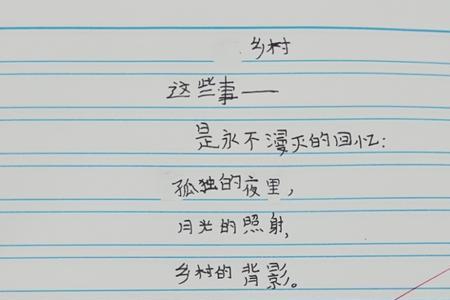 乡村
这些事——
是永不漫灭的回忆：
孤独的夜里，
月光的照射，
乡村的背影。